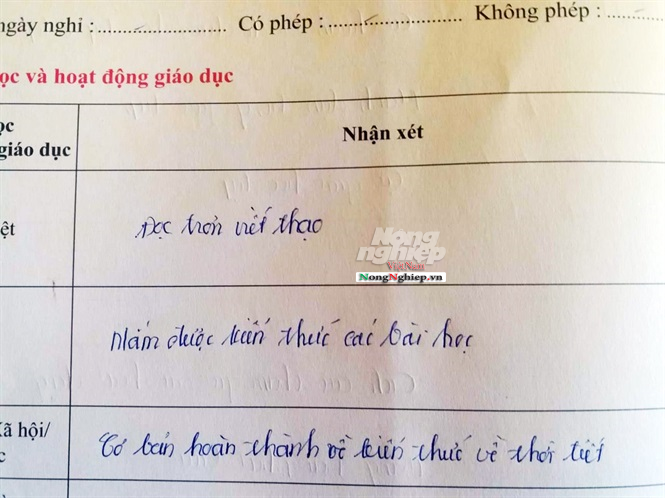 ngày nghỉ :........................ Có phép :........................ Không phép :............
ọc và hoạt động giáo dục
ọc
giáo dục
Nhận xét
ệt
Đọc trơn viết thạo
Nông nghiệp
Việt Nam
NongNghiep.vn
Nắm được kiến thức các bài học
Xã hội/
c
Cơ bản hoàn thành về kiến thức về thời tiết